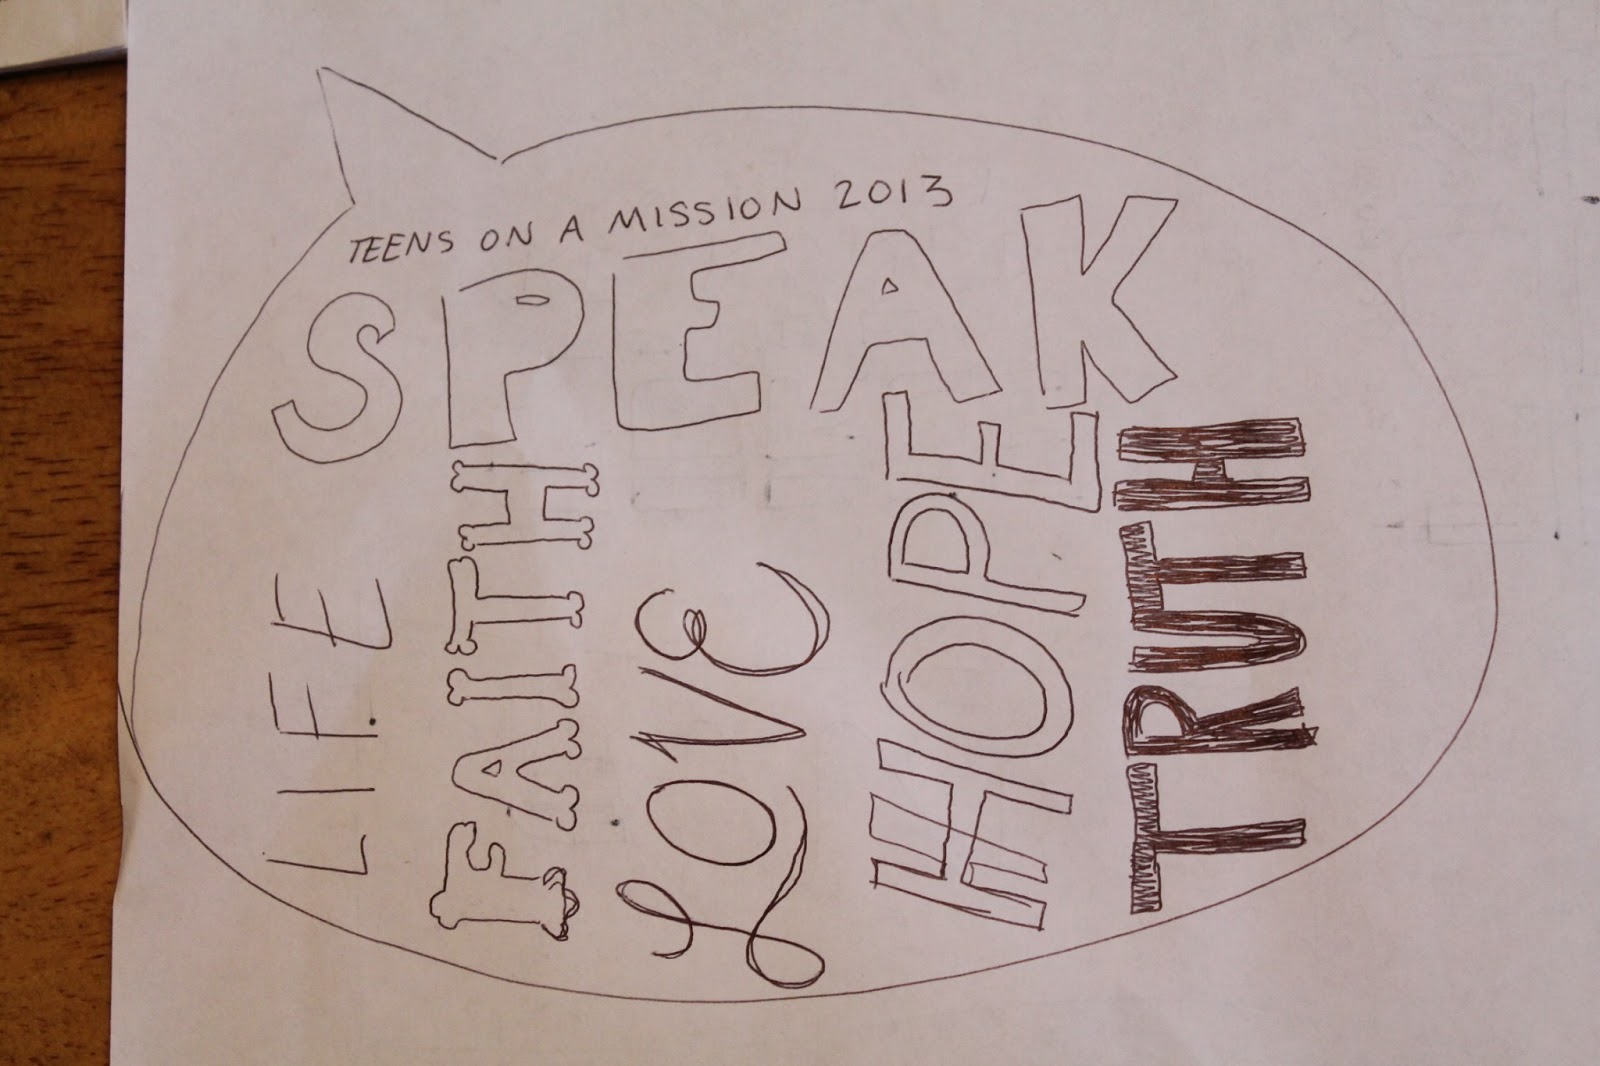 TEENS ON A MISSION 2013
SPEAK
LIFE
FAITH
LOVE
HOPE
TRUTH